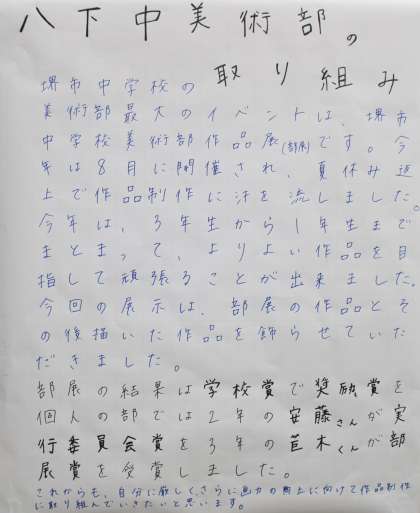 八下中美術部の
取り組み
堺市中学校の
美術部最大のイベントは、堺市
中学校美術部作品展(部展)です。今
年は8月に開催され、夏休み返
上で作品制作に汗を流しました。
今年は、3年生から1年生まで
まとまって、よりよい作品を目
指して頑張ることが出来ました。
今回の展示は、部展の作品とそ
の後描いた作品を飾らせていた
だきました。
部展の結果は学校賞で奨励賞を
個人の部では2年の安藤さんが実
行委員会賞を3年の巨木くんが部
展賞を受賞しました。
これからも、自分に厳しく、さらに画力の向上に向けて作品制作
に取り組んでいきたいと思います。